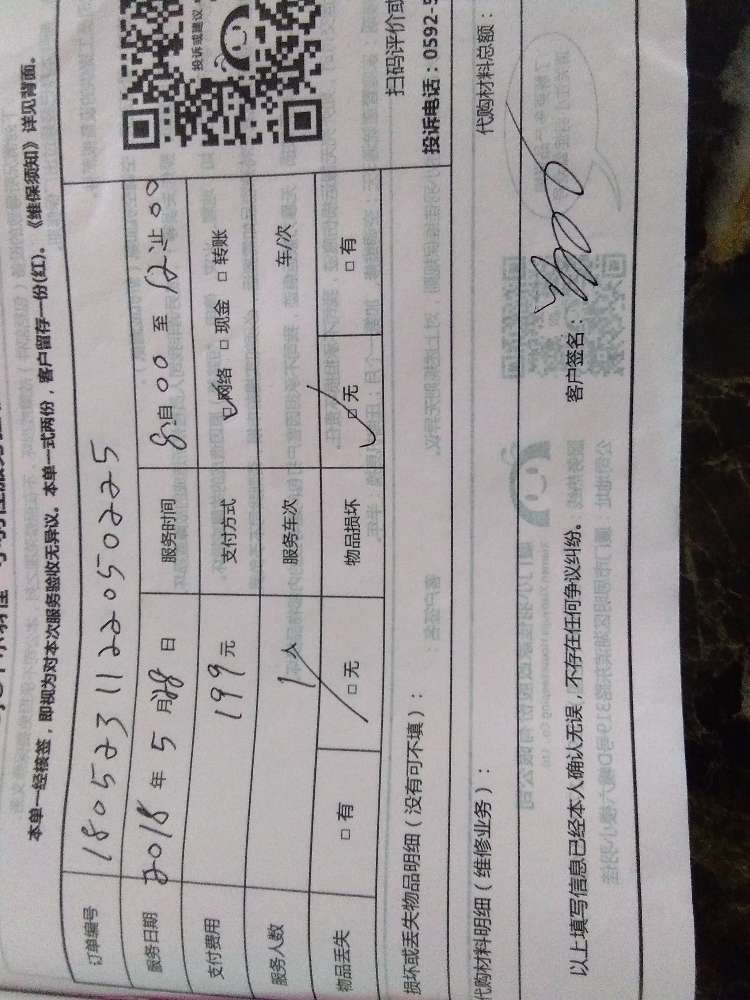 本单一经核签，即视为对本次服务验收无异议。本单一式两份，客户留存一份(红)。《维保须知》详见背面。
订单编号 1805231122050225
服务日期 2018年5月28日 服务时间 8:自00至12:止00
支付费用 199元 支付方式 □网络 □现金 □转账
服务人数 1人 服务车次 车/次
物品丢失 □有 □无 物品损坏 □无 □有
投诉或建议
扫码评价或
投诉电话：0592-5
损坏或丢失物品明细（没有可不填）：
代购材料明细（维修业务）： 代购材料总额：
以上填写信息已经本人确认无误，不存在任何争议纠纷。 客户签名：